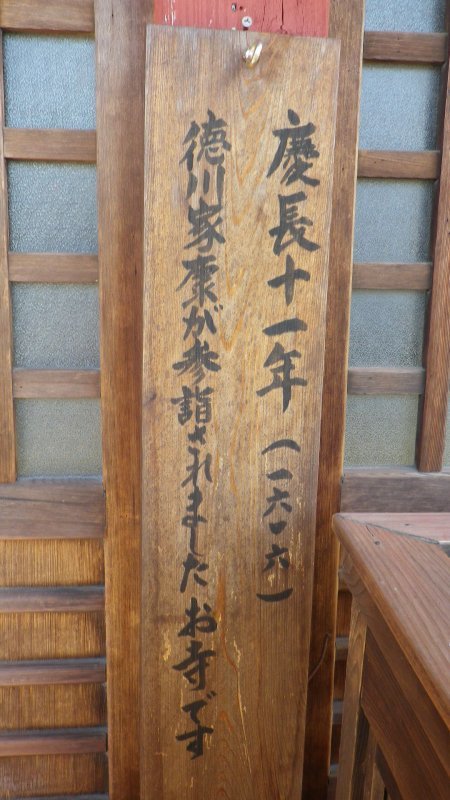 慶長十一年（一六一六）
徳川家康が参詣されましたお寺です